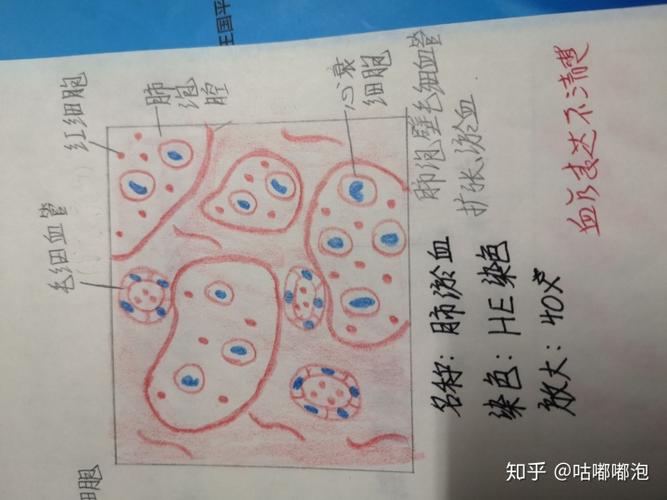 王国平
红细胞
肺泡腔
心衰细胞
毛细血管
肺泡壁毛细血管
扩张、淤血
名称：肺淤血
染色：HE染色
放大：40X
表达不清楚
细胞
知乎 @咕嘟嘟泡